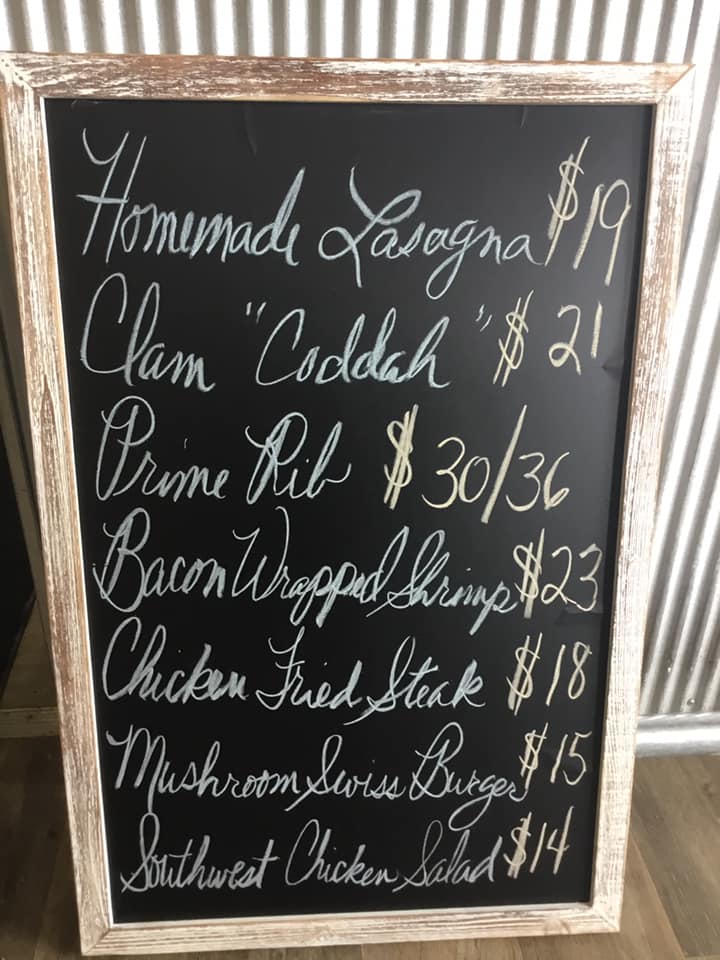 Homemade Lasagna $19
Clam "Coddah" $21
Prime Rib $30/36
Bacon Wrapped Shrimp $23
Chicken Fried Steak $18
Mushroom Swiss Burger $15
Southwest Chicken Salad $14